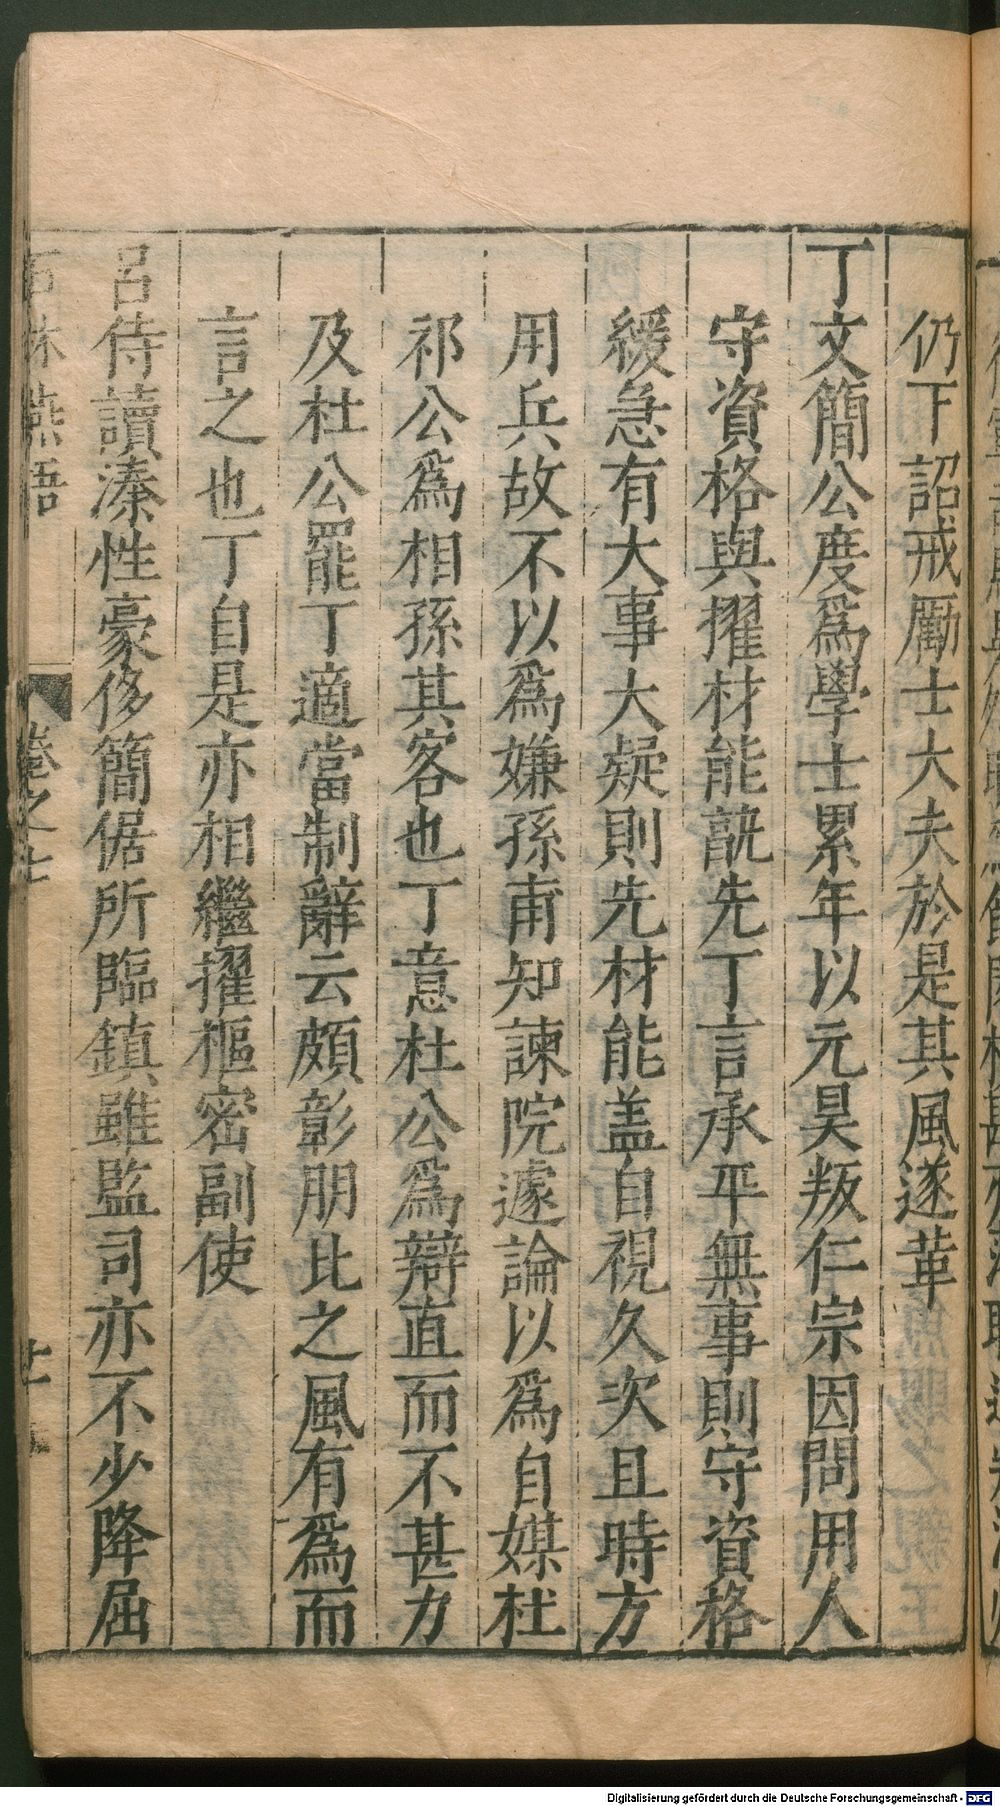 仍下詔戒勵士大夫於是其風遂革
丁文簡公度爲學士累年以元昊叛仁宗因問用人
守資格與擢材能孰先丁言承平無事則守資格
緩急有大事大疑則先材能盖自視久次且時方
用兵故不以爲嫌孫甫知諫院遽論以爲自媒杜
祁公爲相孫其客也丁意杜公爲辯直而不甚力
及杜公罷丁適當制辭云頗彰朋比之風有爲而
言之也丁自是亦相繼擢樞密副使
呂侍讀溱性豪侈簡倨所臨鎮雖監司亦不少降屈
石林燕語 卷之七
Digitalisierung gefördert durch die Deutsche Forschungsgemeinschaft - DFG